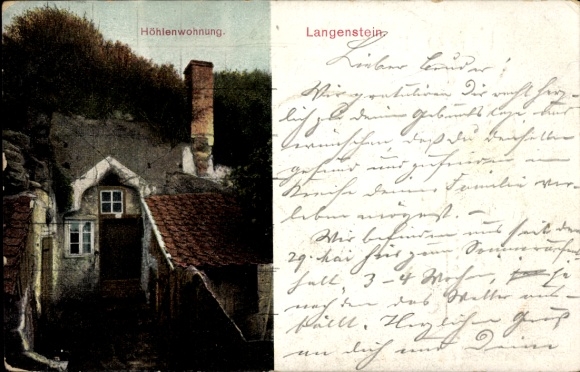 Höhlenwohnung.
Langenstein.
Lieber Bruder!
Wir gratulieren Dir recht herz-
lich zu deinem Geburtstage und
wünschen, daß du denselben
gesund und zufrieden im
Kreise deiner Familie ver-
leben mögest. –
Wir befinden uns seit dem
29. Mai hier zum Sommeraufent-
halt, 3–4 Wochen, je
nachdem das Wetter aus-
fällt. Herzlichen Gruß
an dich und Deine